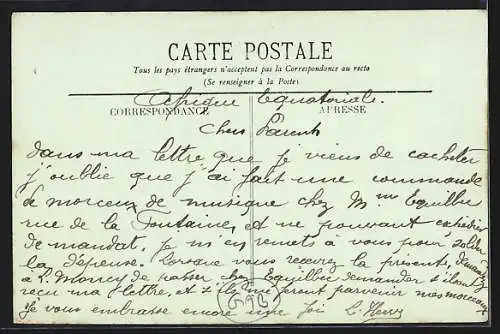 CARTE POSTALE
Tous les pays étrangers n'acceptent pas la Correspondance au recto
(Se renseigner à la Poste)
Afrique Equatoriale.
CORRESPONDANCE
ADRESSE
Chers Parents
Dans ma lettre que je viens de cacheter
j'oublie que j'ai fait une commande
de morceux de musique chez Mme Equillec
rue de la Fontaine, et ne pouvant expédier
de mandat, je m'en remets à vous pour solder
la dépense. Lorsque vous recevrez la présente, demandez
à L. de passer chez Equillec demander s'ils ont
recu ma lettre, et s'ils me feront parvenir mes morceaux
Je vous embrasse encore une fois L. Henry